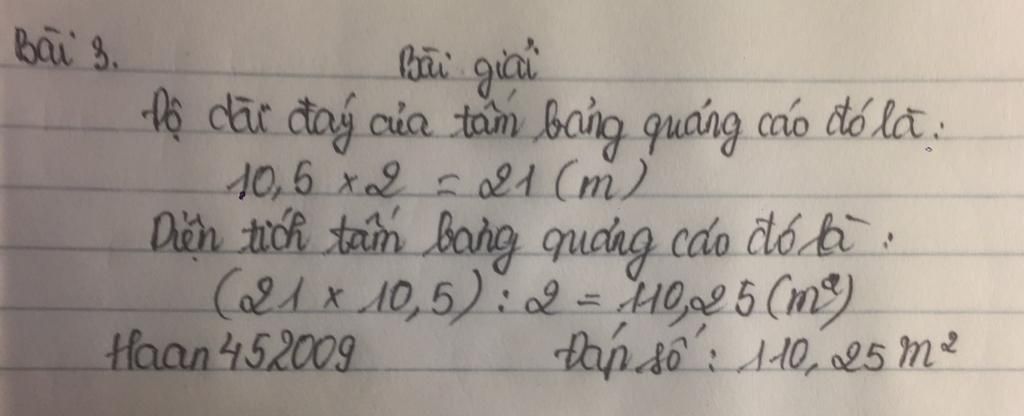 Bài 3.
Bài giải
Độ dài đáy của tấm bảng quảng cáo đó là:
10,5 × 2 = 21 (m)
Diện tích tấm bảng quảng cáo đó là:
(21 × 10,5) : 2 = 110,25 (m²)
Haan452009 Đáp số: 110,25 m²